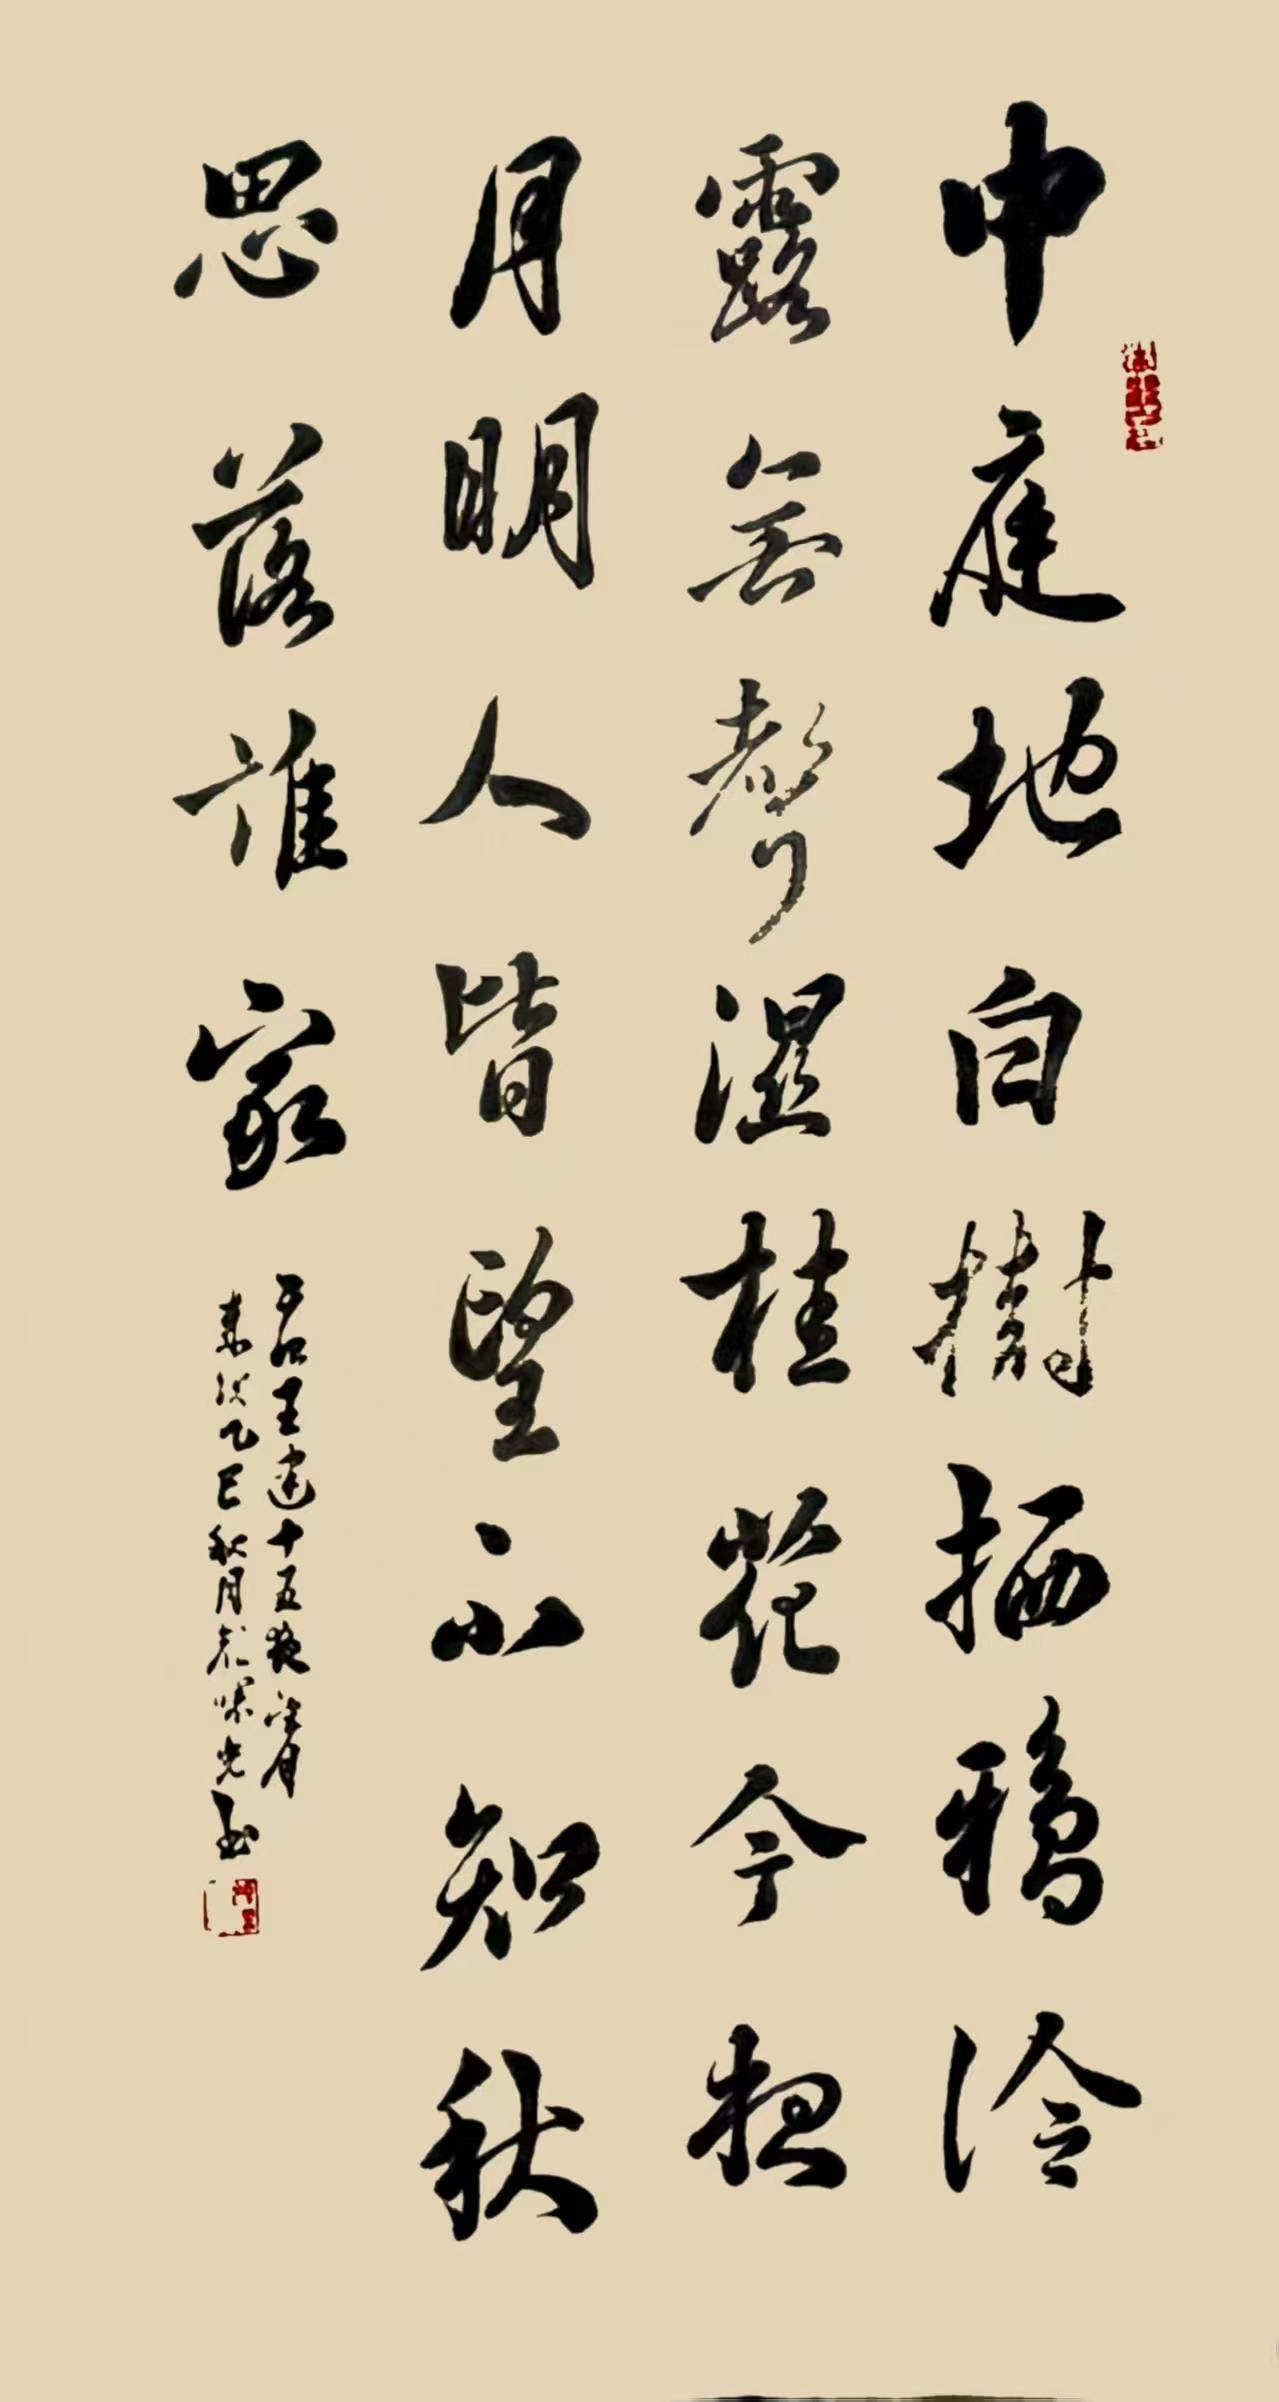 中庭地白樹栖鴉冷
露無聲濕桂花今夜
月明人皆望不知秋
思落誰家
王建十五夜望月
歲次乙巳秋月 光書